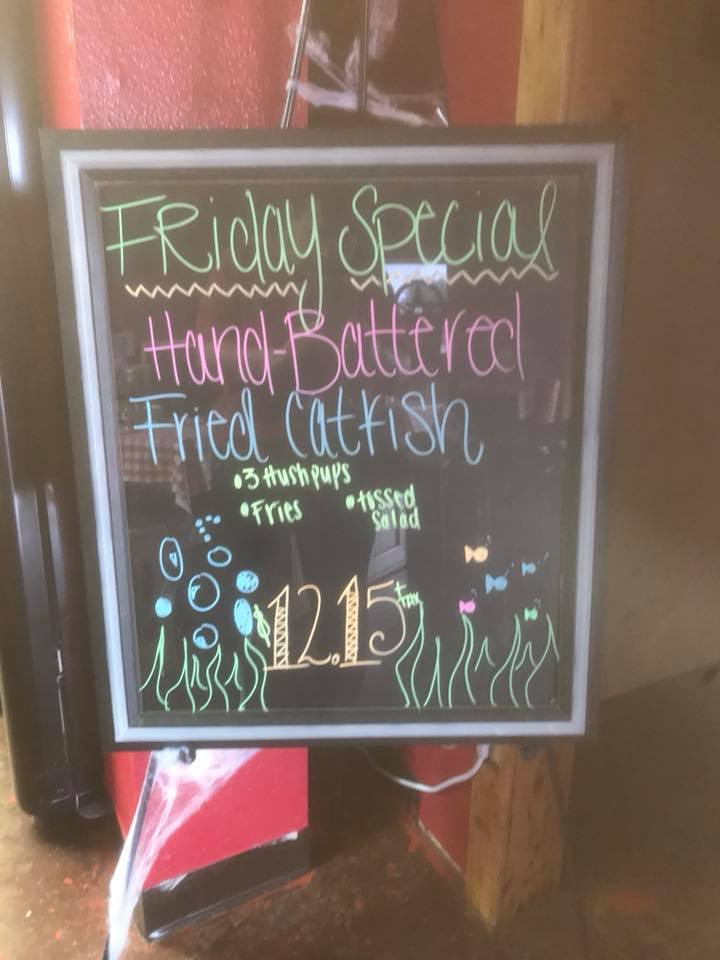 Friday Special
Hand-Battered
Fried Catfish
• 3 Hushpups
• Fries • tossed salad
$12.15 + tax